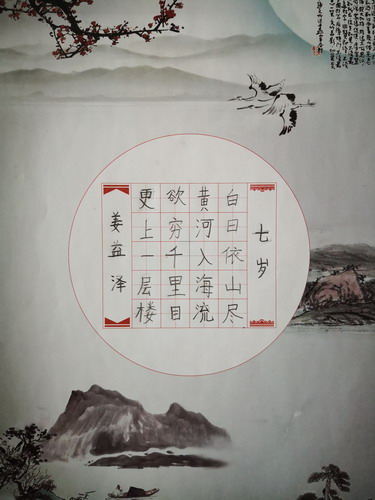 七岁
白日依山尽
黄河入海流
欲穷千里目
更上一层楼
姜益泽